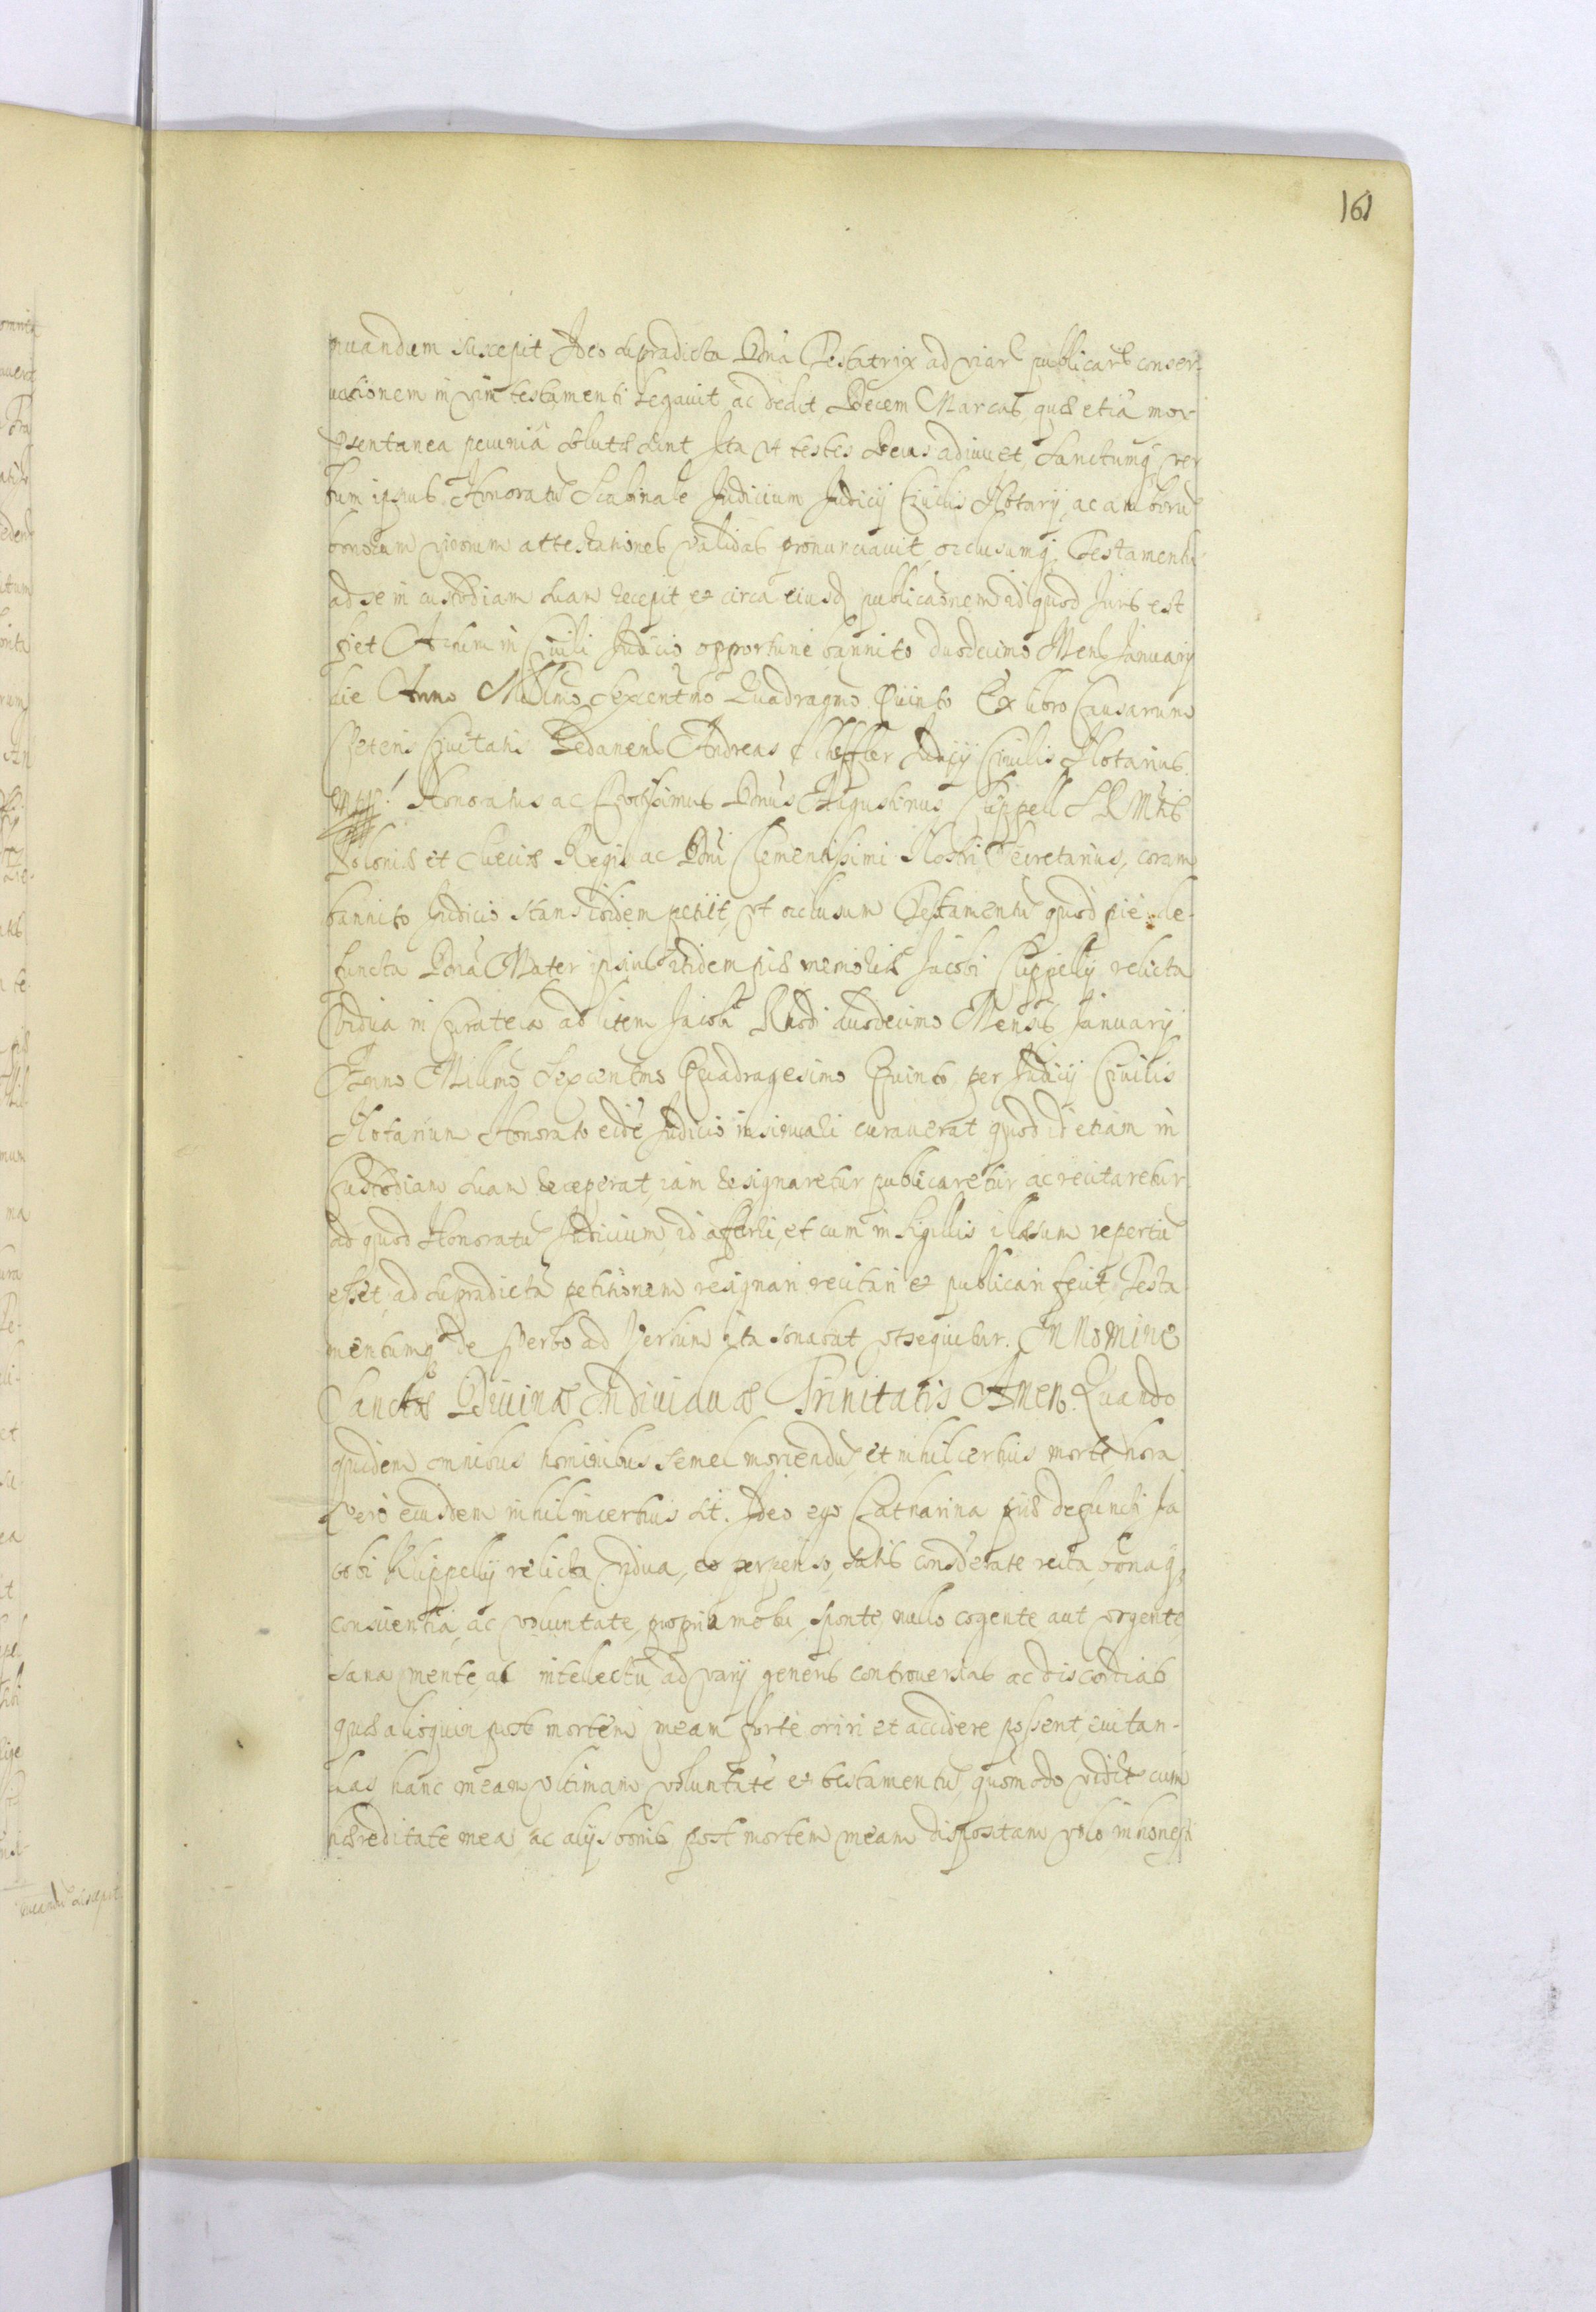 161
quandum suscepit Ideo supradicta Dna Testatrix ad viar publicarũ conser-
vationem in vim testamenti legavit ac dedit Decem Marcas, quæ etiã
pecuniâ solutæ sunt Ita vt testes Deus adiuuet, Sanctumq ver
bum ipsius. Honoratũ Scabinale Judicium Judicij Civilis Notarij, ac amborũ
bonorum virorum attestationes validas pronunciavit, occlusumq Testamentũ
ad se in custodiam suam recepit et circa eiusd publicaõnem id quod Juris est
fiet Actum in Civili Judicio opportune bannito duodecimo Mens Januarij
die Anno Millmo Sexcentmo Quadragmo Quinto Ex libro Causarum
Veteris Civitatis Gedanens Andreas Scheffler Judicij Civilis Notarius
mpp. Honoratus ac Dnus Augustinus Clippell S R Mtis
Poloniæ et Sueciæ Regis ac Dni Clementissimi Nostri Secretarius, coram
bannito Judicio stans ibidem petiit, vt occlusum Testamentũ quod pie de-
functa Dna Mater ipsius itidem piæ memoriæ Jacobi Clippelly relicta
Vidua in Curatela ad litem Jacobi Rhodi duodecimo Mensis Januarij
Anno Millmo Sexcentmo Quadragesimo Quinto per Judicij Civilis
Notarium Honorato eidẽ Judicio insinuali curaverat quod id etiam in
Custodiam suam receperat, iam resignaretur publicaretur ac recitaretur
ad quod Honoratũ Judicium id afferri, et cum in Sigillis illæsum repertũ
esset, ad supradictã petitionem resignari recitari et publicari fecit, Testa
mentumq de Verbo ad Verbum ita sonabat vt sequitur. In Nomine
Sanctæ Divinæ Individuæ Trinitatis Amen. Quando
quidem omnibus hominibus semel moriendũ, et nihil certius morte, hora
vero eiusdem nihil incertius sit. Ideo ego Catharina piæ defuncti Ja
cobi Klippelly relicta vidua, eo perpenso, satis considerate recta, bonaq,
conscientia, ac voluntate, proprio motu, sponte, nullo cogente aut vrgente,
sana mente, ac intellectu, ad varij generis controversias ac discordias
quæ alioquin post mortem meam forte oriri et accidere possent, evitan-
das, hanc meam vltimam voluntatẽ et testamentũ, quomodo cum
hæreditate mea ac alijs bonis post mortem meam dispositam volo in honest